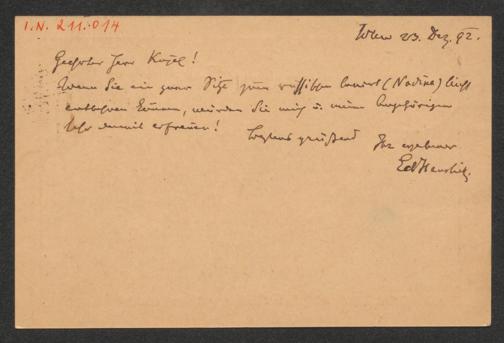 I.N. 211.014
Wien 23. Dez. 92.
Geehrter Herr Kugel!
Wenn Sie ein paar Sitze zum russischen Concert (Nadina) leicht
entbehren können, würden Sie mich u. meine Angehörigen
sehr damit erfreuen!
bestens grüßend
Ihr ergebener
EdHanslick